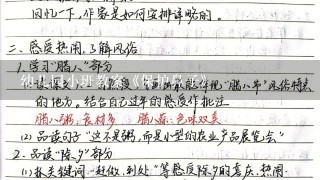 回忆一下,作家是如何安排详略的。
二、感受热闹,了解风俗
1.学习“腊八”部分
幼儿园小班教案《保护鼻子》
的地方。结合自己过年的感受作批注
腊八粥:食材多 腊八蒜:色味双美
(2)品读句子“这不是粥,而是小型的农业产品展览会”
2.品读“除夕”部分
(1)抓关键词“赶做、到处”等感受除夕的喜庆、热闹